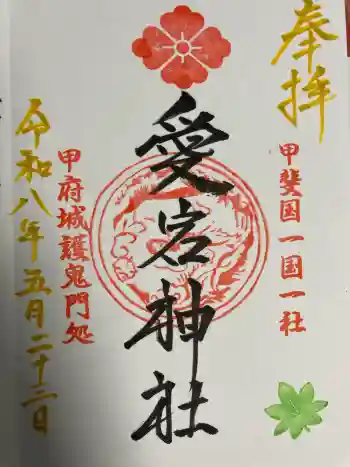 奉拝
甲斐国一国一社
愛宕神社
甲府城護鬼門処
令和八年五月二十二日